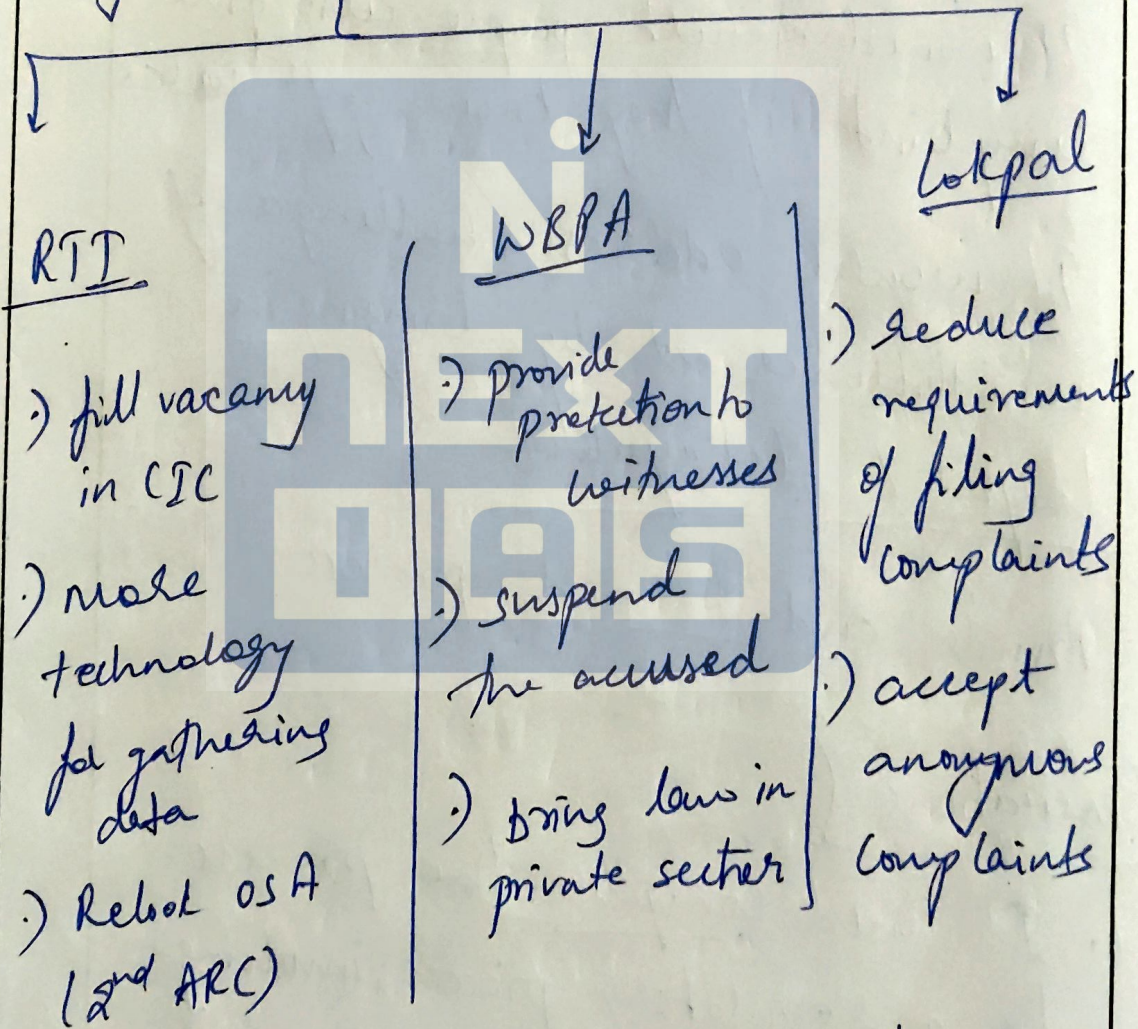 RTI
.) fill vacancy
in CIC
.) more
technology
for gathering
data
.) Reboot OSA
(2nd ARC)
WBPA
.) provide
protection to
witnesses
.) suspend
the accused
.) bring law in
private sector
Lokpal
.) reduce
requirements
of filing
complaints
.) accept
anonymous
complaints
Ni
NEXT
IAS